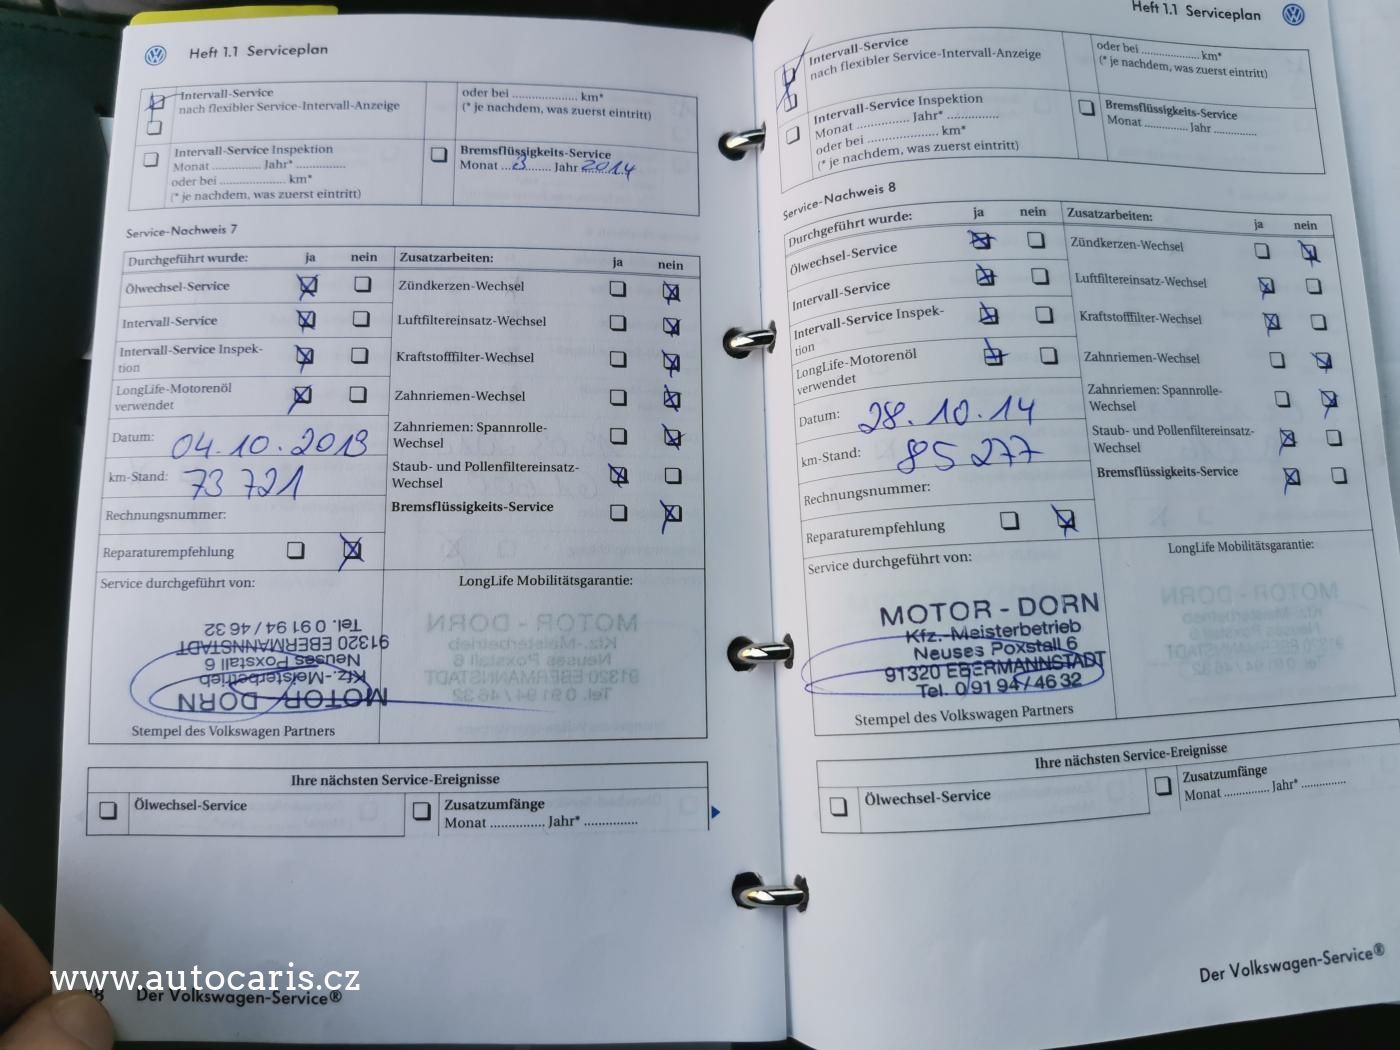 Heft 1.1 Serviceplan
Intervall-Service
nach flexibler Service-Intervall-Anzeige
oder bei ..................... km*
(* je nachdem, was zuerst eintritt)
Intervall-Service Inspektion
Monat ............... Jahr* ...............
oder bei ..................... km*
(* je nachdem, was zuerst eintritt)
Bremsflüssigkeits-Service
Monat ...3........ Jahr 2014
Service-Nachweis 7
Durchgeführt wurde: ja nein
Zusatzarbeiten: ja nein
Ölwechsel-Service
Zündkerzen-Wechsel
Intervall-Service
Luftfiltereinsatz-Wechsel
Intervall-Service Inspek-
tion
Kraftstofffilter-Wechsel
LongLife-Motorenöl
verwendet
Zahnriemen-Wechsel
Datum: 04.10.2013
Zahnriemen: Spannrolle-
Wechsel
km-Stand: 73 721
Staub- und Pollenfiltereinsatz-
Wechsel
Rechnungsnummer:
Bremsflüssigkeits-Service
Reparaturempfehlung
Service durchgeführt von:
LongLife Mobilitätsgarantie:
MOTOR - DORN
Kfz.-Meisterbetrieb
Neuses Poxstall 6
91320 EBERMANNSTADT
Tel. 0 91 94 / 46 32
Stempel des Volkswagen Partners
Ihre nächsten Service-Ereignisse
Ölwechsel-Service
Zusatzumfänge
Monat ............... Jahr* ...............
Der Volkswagen-Service®
Heft 1.1 Serviceplan
Intervall-Service
nach flexibler Service-Intervall-Anzeige
oder bei ..................... km*
(* je nachdem, was zuerst eintritt)
Intervall-Service Inspektion
Monat ............... Jahr* ...............
oder bei ..................... km*
(* je nachdem, was zuerst eintritt)
Bremsflüssigkeits-Service
Monat ............... Jahr ...............
Service-Nachweis 8
Durchgeführt wurde: ja nein
Zusatzarbeiten: ja nein
Ölwechsel-Service
Zündkerzen-Wechsel
Intervall-Service
Luftfiltereinsatz-Wechsel
Intervall-Service Inspek-
tion
Kraftstofffilter-Wechsel
LongLife-Motorenöl
verwendet
Zahnriemen-Wechsel
Datum: 28.10.14
Zahnriemen: Spannrolle-
Wechsel
km-Stand: 85 277
Staub- und Pollenfiltereinsatz-
Wechsel
Rechnungsnummer:
Bremsflüssigkeits-Service
Reparaturempfehlung
Service durchgeführt von:
LongLife Mobilitätsgarantie:
MOTOR - DORN
Kfz.-Meisterbetrieb
Neuses Poxstall 6
91320 EBERMANNSTADT
Tel. 0 91 94 / 46 32
Stempel des Volkswagen Partners
Ihre nächsten Service-Ereignisse
Ölwechsel-Service
Zusatzumfänge
Monat ............... Jahr* ...............
Der Volkswagen-Service®
www.autocaris.cz